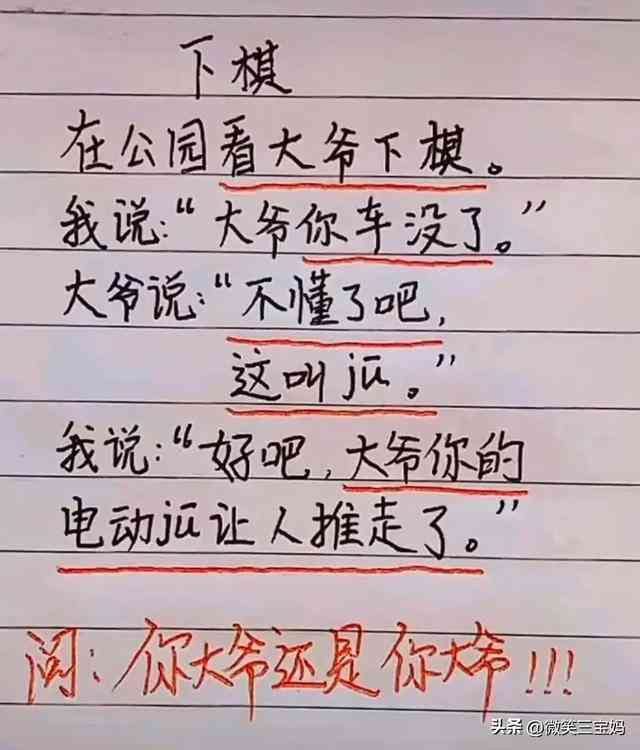 下棋
在公园看大爷下棋。
我说:“大爷你车没了。”
大爷说:“不懂了吧,
这叫jū。”
我说:“好吧,大爷你的
电动jū让人推走了。”
问:你大爷还是你大爷!!!
头条 @微笑三宝妈